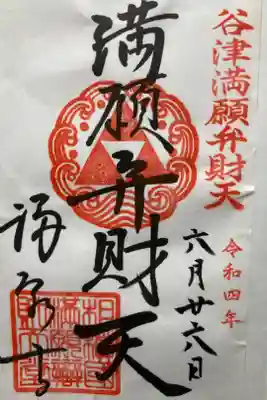 谷津満願弁財天
令和四年
六月廿六日
満願弁財天